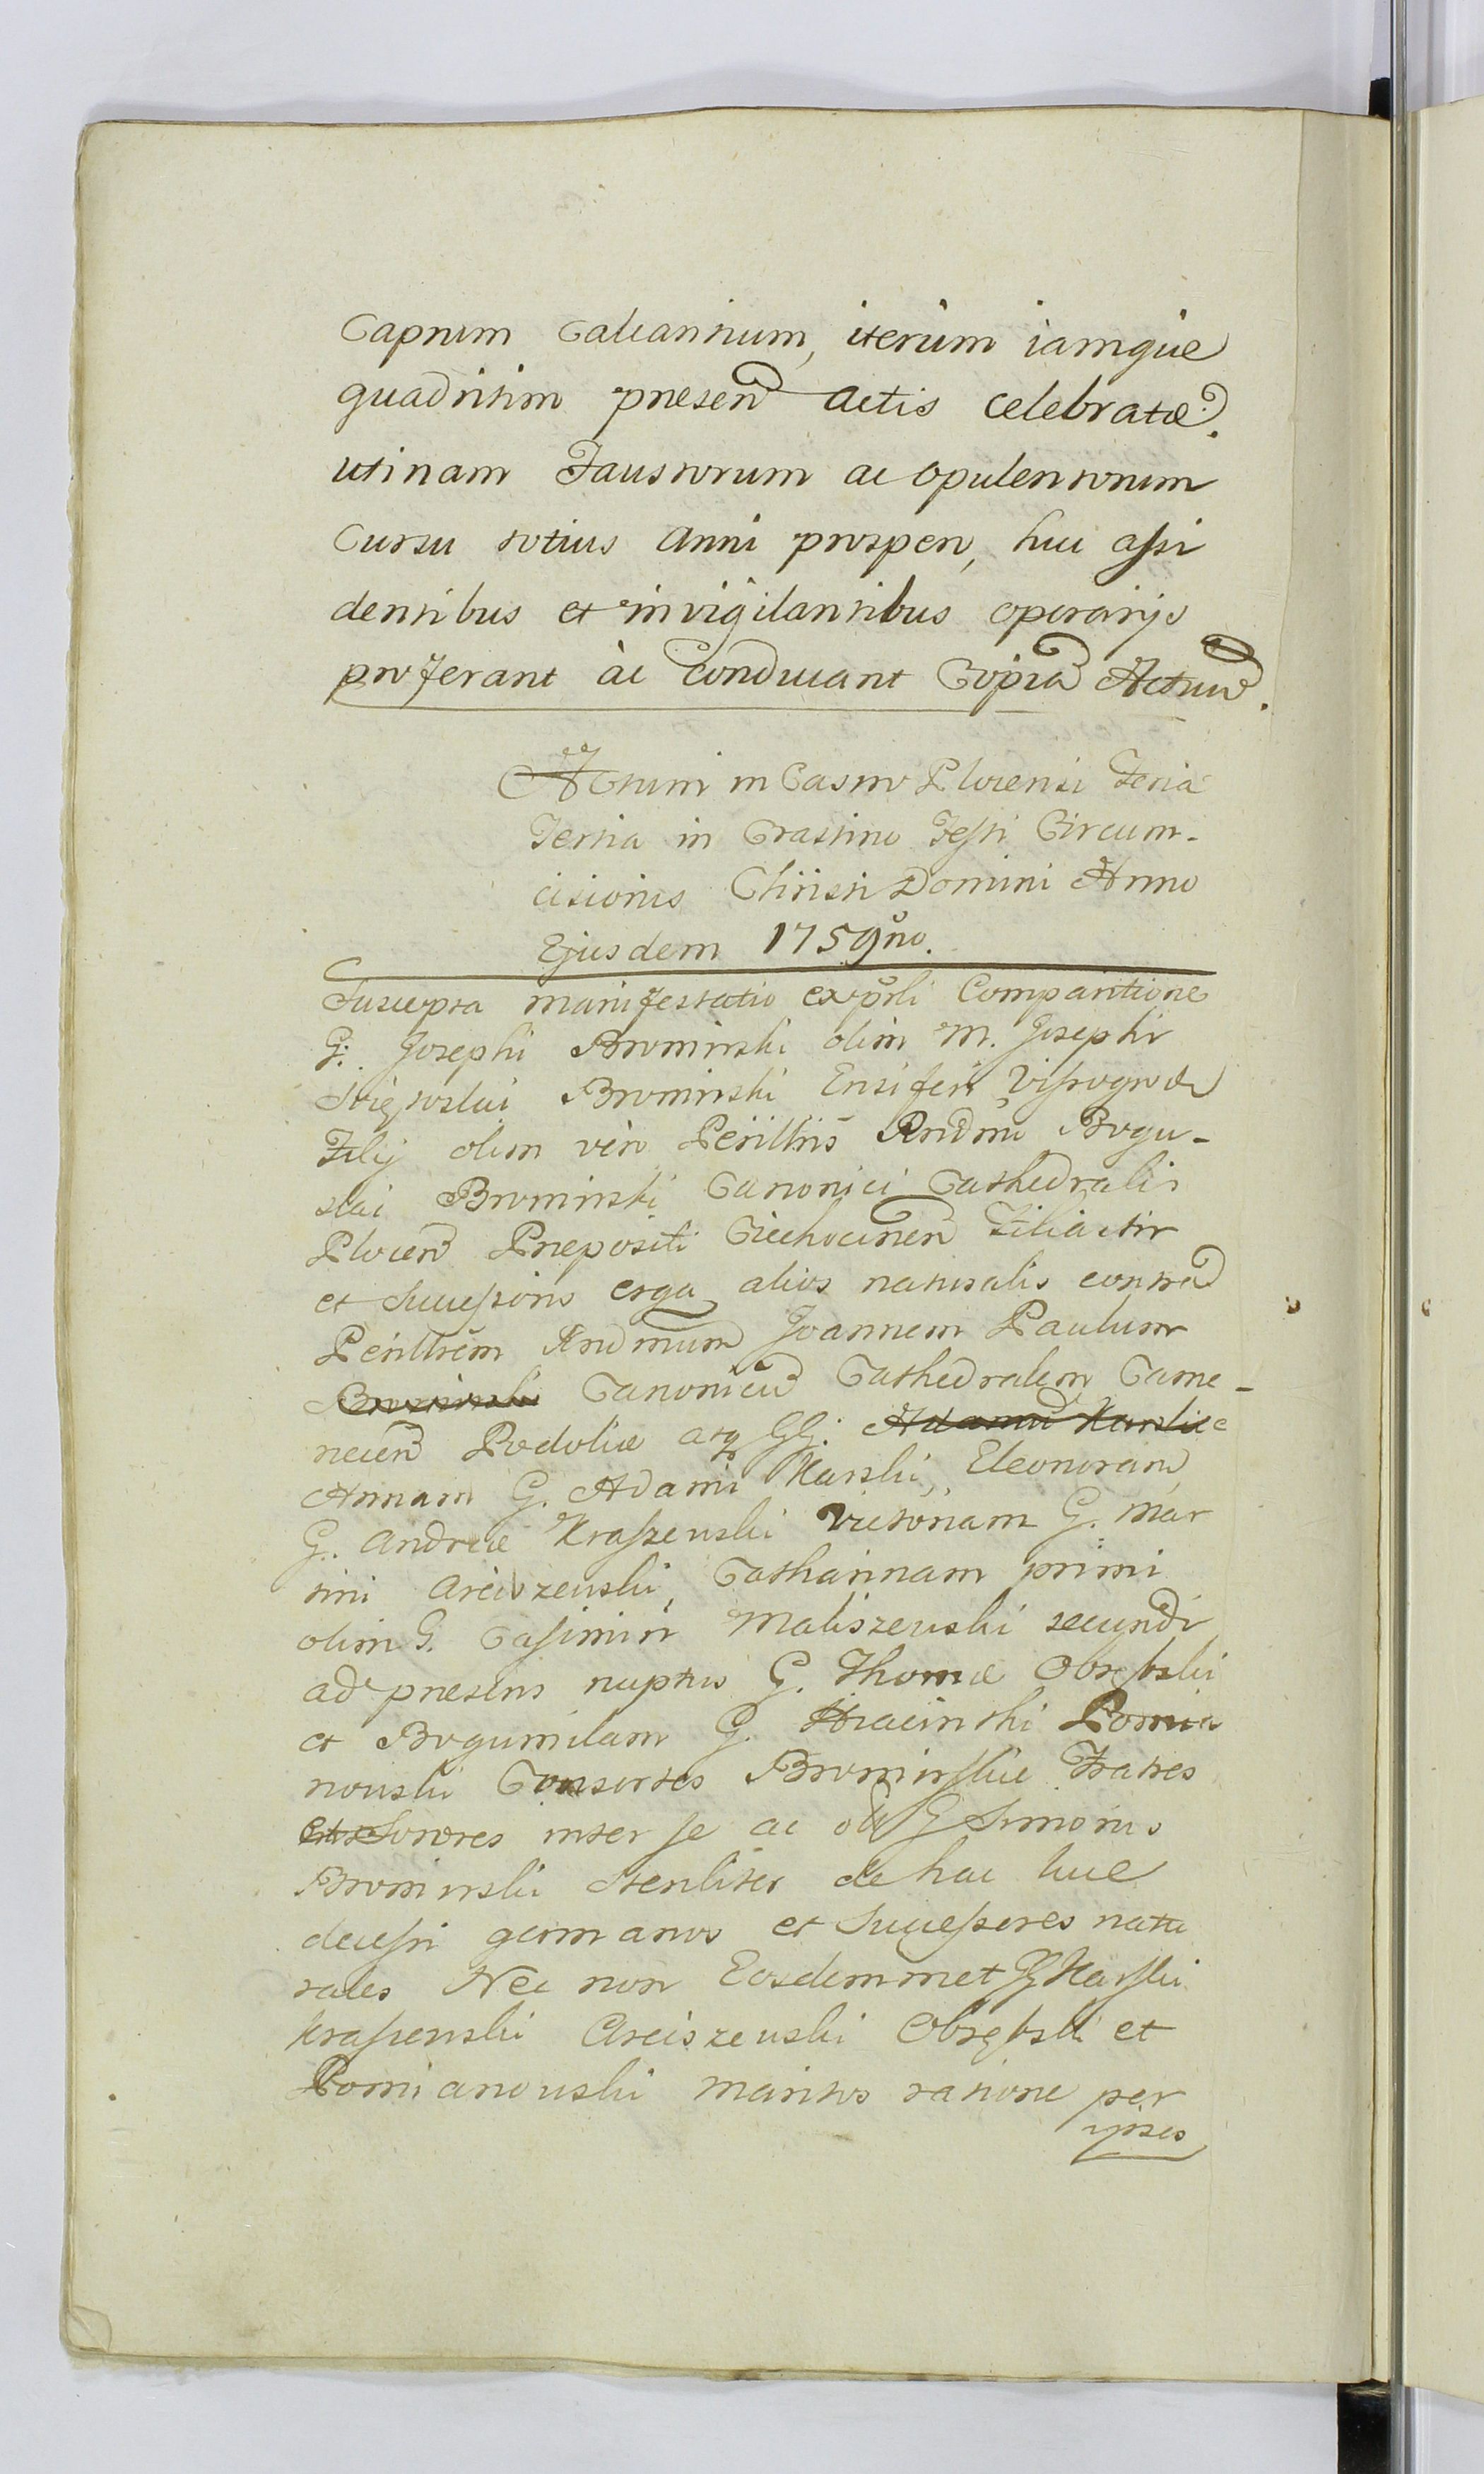 Captum Galeantium, iterum iamque
quadritim presen actis celebratæ.
utinam Faustorum ac opulentorum
Cursu totius Anni prosperi, huc assi
dentibus et invigilantibus operarijs
proferant ac conducant Copia Actuu.
Actum in Castro Plocensi Feria
Tertia in Crastino Festi Circum-
cisionis Christi Domini Anno
Ejusdem 1759no.
Suscepta manifestatio ex psnli Comparitione
G. Josephi Brominski olim M. Josephi
Brominski Ensiferi Vissogrod
Filij olim vero Perillris Rndmi Bogu-
slai Brominski Canonici Cathedralis
Plocen Prepositi Ciechocinen
et Successoris erga alios naturalis contra
Perillrem Rndmum Joannem Paulum
Brominski Canonicu Cathedralem Came-
necen Podoliæ atq GG. Adamu Karskie
Annam G. Adami Karski, Eleonoram
G. Andreæ Kraszewski Victoriam G. Mar
tini Arciszewski, Catharinam primi
olim G. Casimiri Maliszewski secundi
ad presens nuptus G. Thomæ Obrębski
et Bogumilam G. Hiacinthi Pomia
nowski Consortes Brominskie Fratres
et Sorores inter se ac oli G Simonis
Brominski steriliter de hac luce
decessi germanos et Successores natu
rales Nec non Eosdemmet GG Karski
Kraszewski Arciszewski Obrębski et
Pomianowski maritos ratione per
ipsos